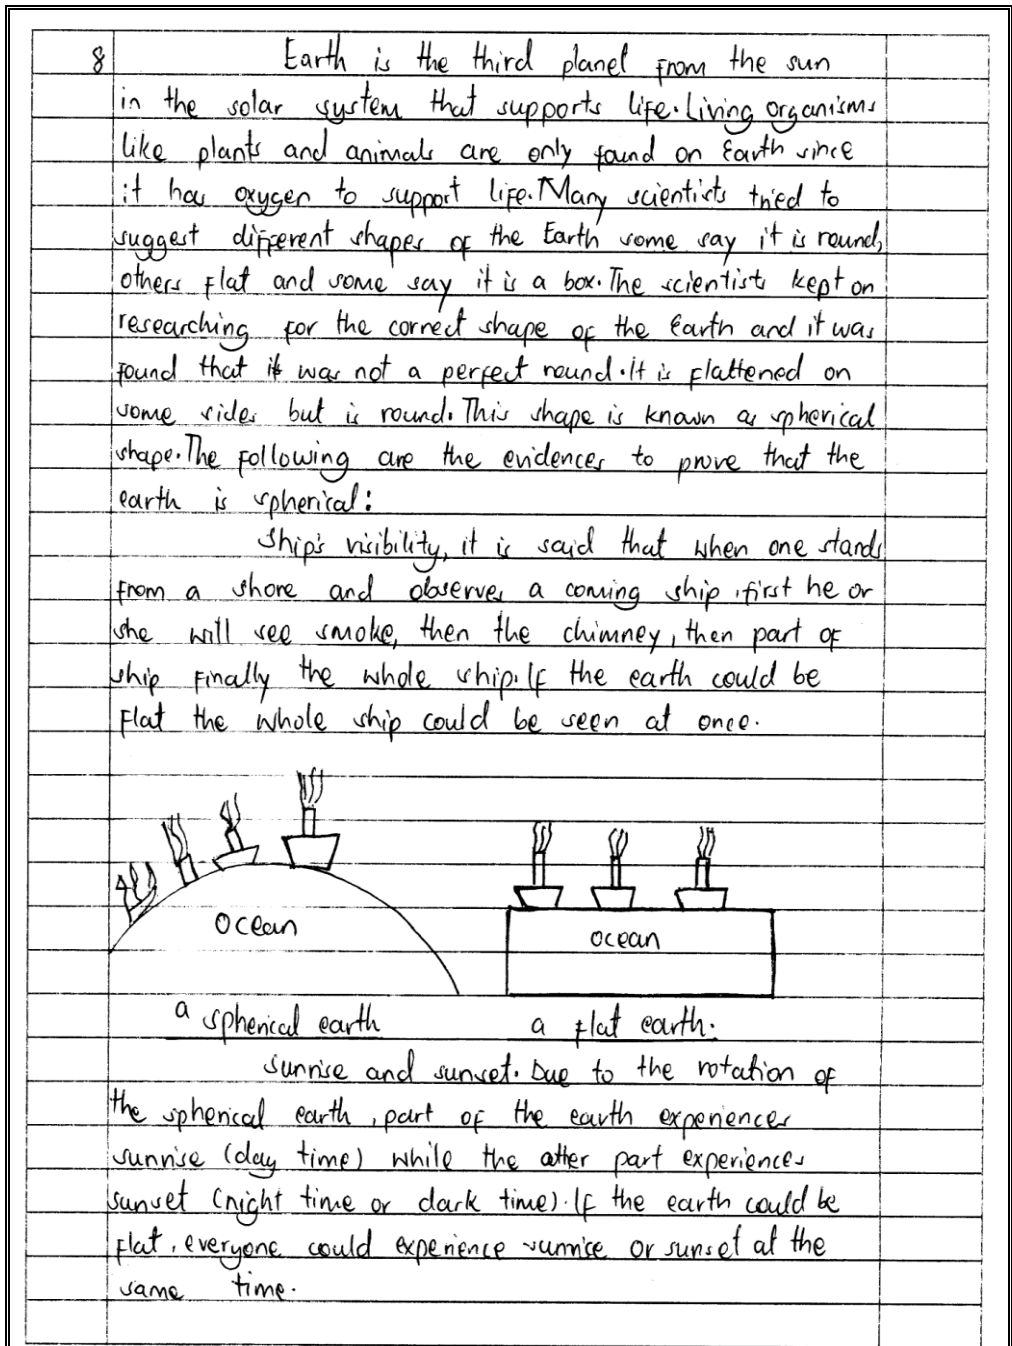 8 Earth is the third planel from the sun
in the solar system that supports life. Living organisms
like plants and animals are only found on Earth since
it has oxygen to support life. Many scientists tried to
suggest different shapes of the Earth some say it is round,
others flat and some say it is a box. The scientists kept on
researching for the correct shape of the Earth and it was
found that it was not a perfect round. It is flattened on
some sides but is round. This shape is known as spherical
shape. The following are the evidences to prove that the
earth is spherical:
Ship's visibility, it is said that when one stands
from a shore and observes a coming ship, first he or
she will see smoke, then the chimney, then part of
ship finally the whole ship. If the earth could be
flat the whole ship could be seen at once.
Ocean
ocean
a spherical earth
a flat earth.
Sunrise and sunset. Due to the rotation of
the spherical earth, part of the earth experiences
sunrise (day time) while the other part experiences
sunset (night time or dark time). If the earth could be
flat, everyone could experience sunrise or sunset at the
same time.